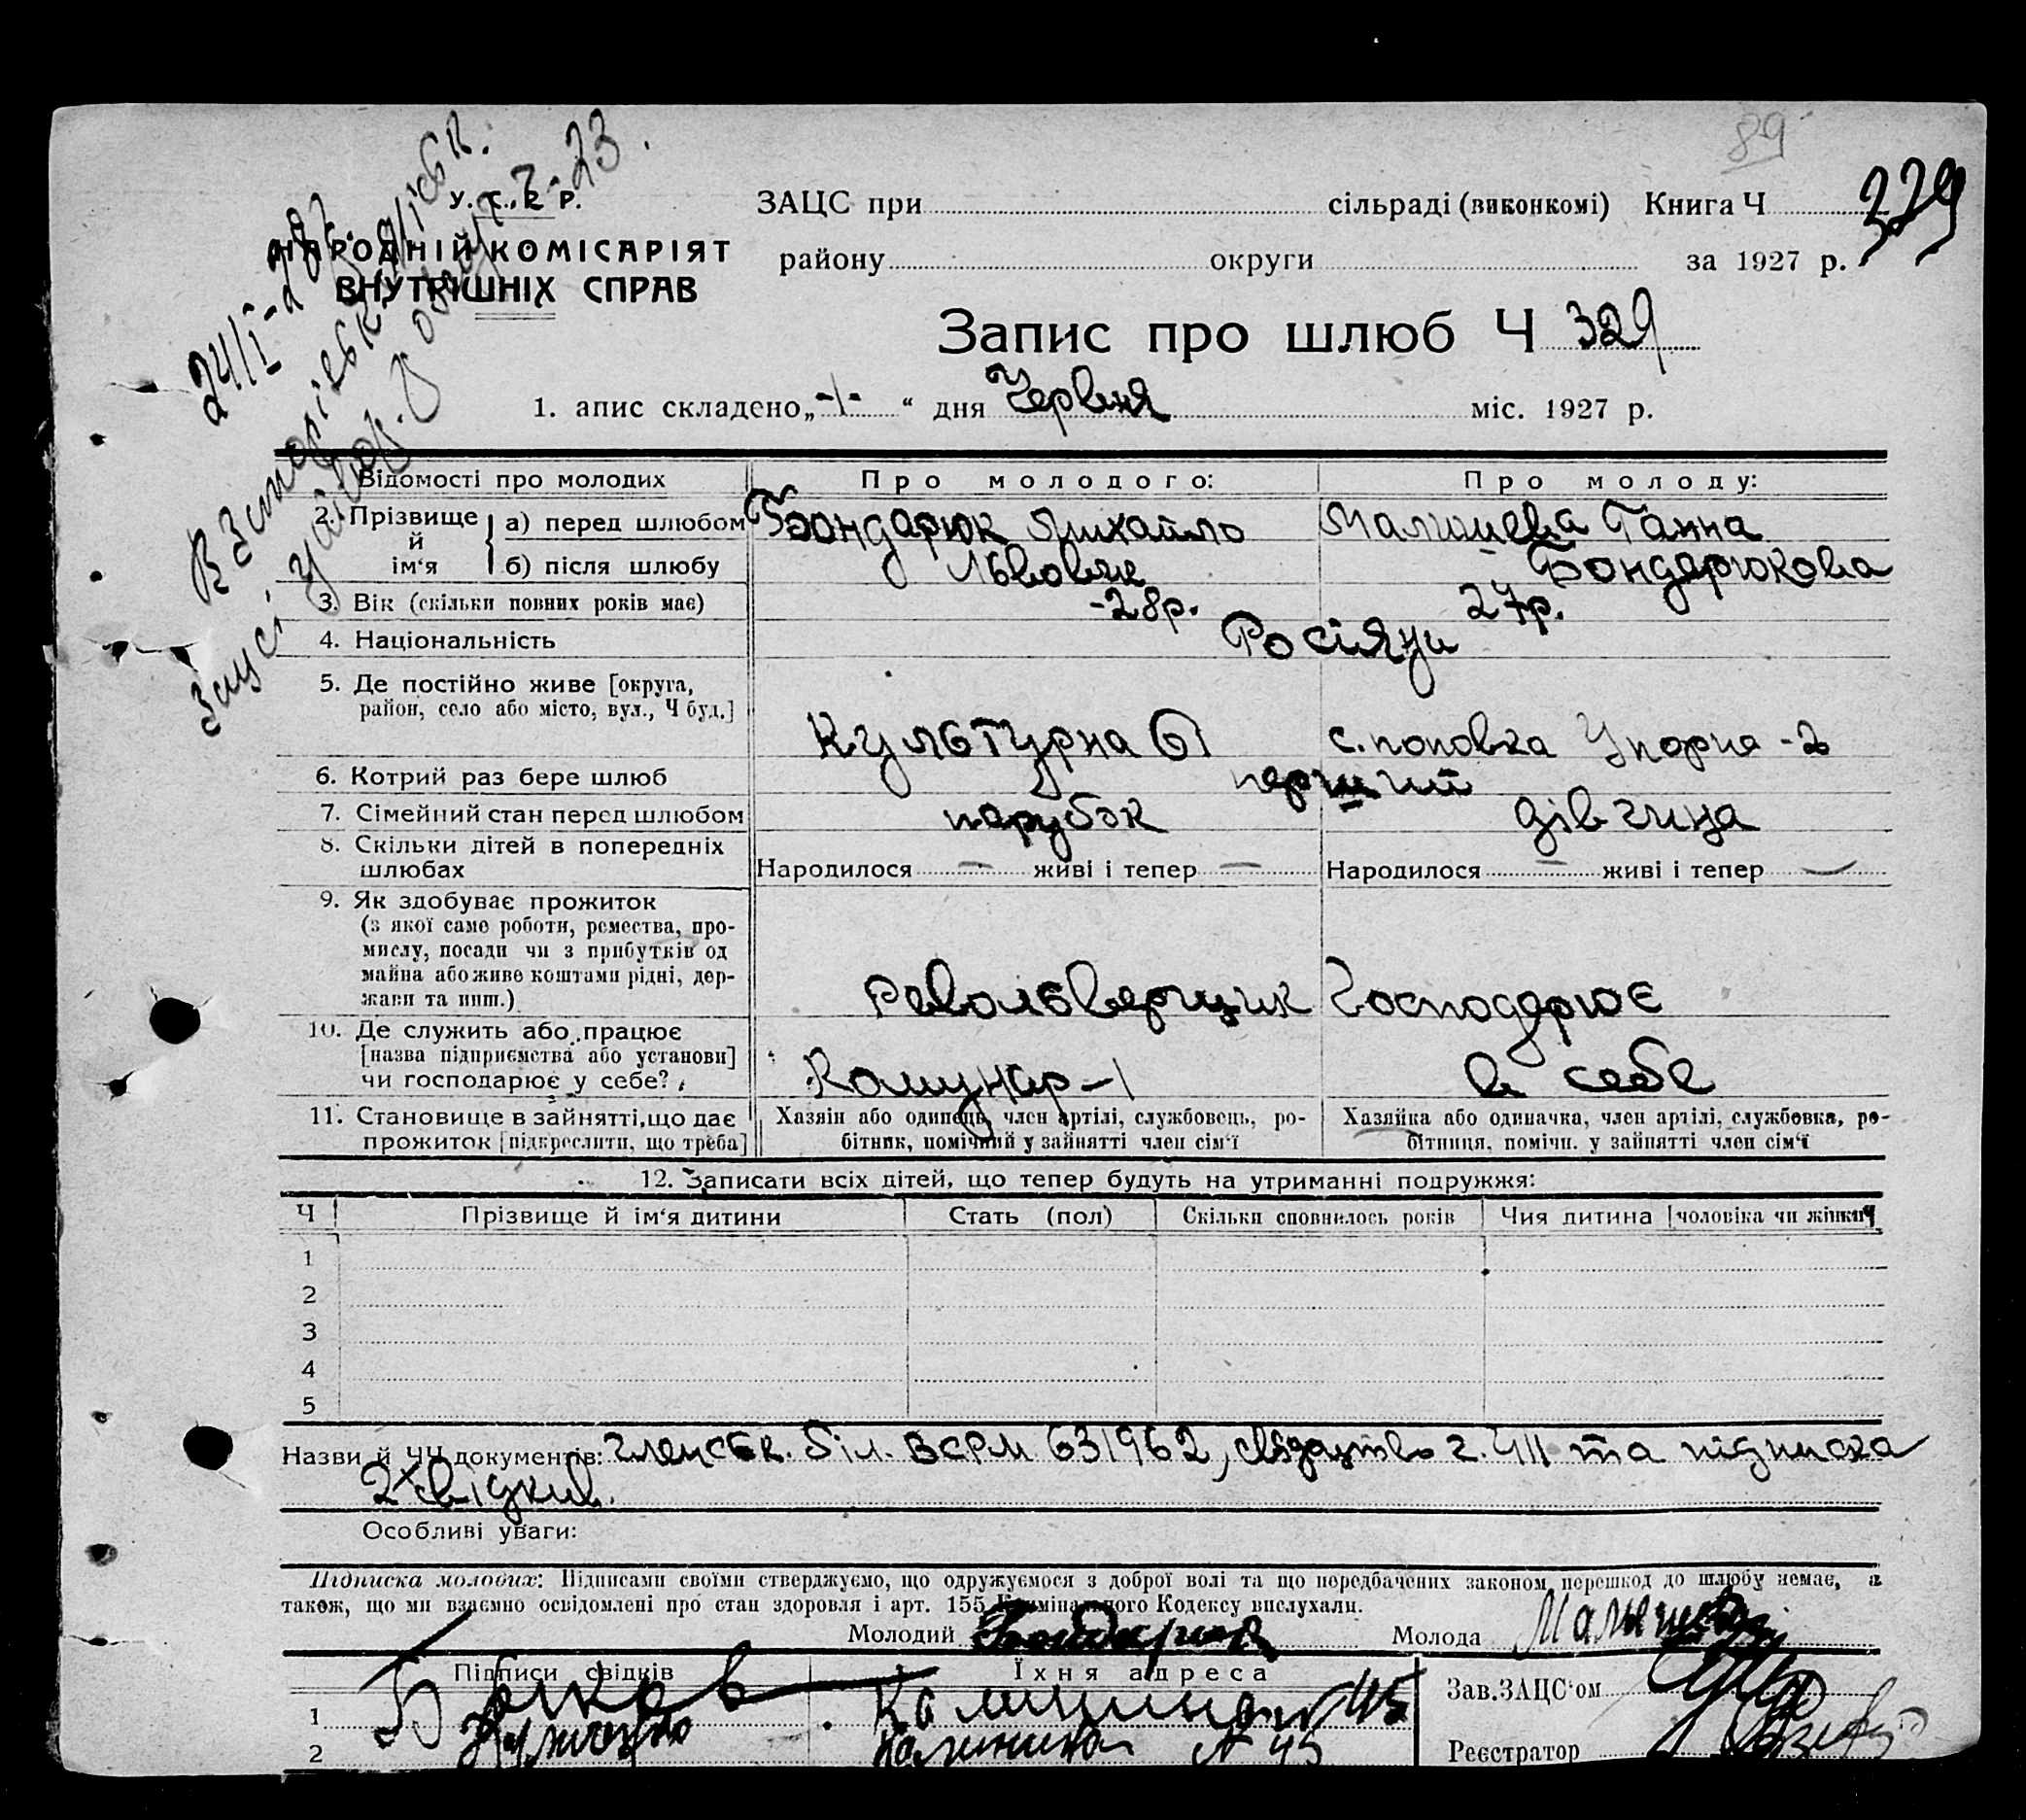 89
329
У. С. Р. Р.
НАРОДНІЙ КОМІСАРІЯТ
ВНУТРІШНІХ СПРАВ
24/I-28 р.
В Запорізьк.
Запоріськ.
ЗАЦС при сільраді (виконкомі) Книга Ч
району округи за 1927 р.
Запис про шлюб Ч 329
1. апис складено „-1-“ дня Червня міс. 1927 р.
Відомості про молодих
Про молодого:
Про молоду:
2. Прізвище й ім‘я
а) перед шлюбом
Бондарюк Михайло
Малишева Ганна
б) після шлюбу
Львович
Бондарюкова
3. Вік (скільки повних років має)
-28р.
27р.
4. Національність
Росіяни
5. Де постійно живе [округа,
район, село або місто, вул., Ч буд.]
Культурна 61
с. поповка Упорна -2
6. Котрий раз бере шлюб
перший
7. Сімейний стан перед шлюбом
парубок
дівчина
8. Скільки дітей в попередніх
шлюбах
Народилося — живі і тепер —
Народилося — живі і тепер —
9. Як здобуває прожиток
(з якої саме роботи, ремества, про-
мислу, посади чи з прибутків од
майна або живе коштами рідні, дер-
жави та инш.)
Револьверщик
Господарює
10. Де служить або працює
[назва підприємства або установи]
чи господарює у себе?
Комунар-1
в себе
11. Становище в зайнятті, що дає
прожиток [підкреслити, що треба]
Хазяїн або одинець, член артілі, службовець, ро-
бітник, помічний у зайнятті член сім‘ї
Хазяйка або одиначка, член артілі, службовка, ро-
бітниця, помічн. у зайнятті член сім‘ї
12. Записати всіх дітей, що тепер будуть на утриманні подружжя:
Ч Прізвище й ім‘я дитини Стать (пол) Скільки сповнилось років Чия дитина [чоловіка чи жінки]
1
2
3
4
5
Назви й ЧЧ документів: членськ. біл. ВСРМ 631962, свідоцтво г. 411 та підписка
2х свідків.
Особливі уваги:
Підписка молодих: Підписами своїми стверджуємо, що одружуємося з доброї волі та що передбачених законом перешкод до шлюбу немає, а
також, що ми взаємно освідомлені про стан здоровля і арт. 155 Кримінального Кодексу вислухали.
Молодий Бондарюк Молода Малышева
Підписи свідків Їхня адреса
Зав. ЗАЦС‘ом
1 Калинина № 45
2 Калинина № 45
Реєстратор